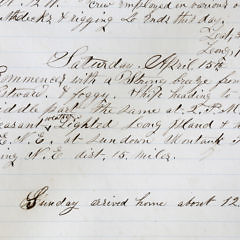 Crew employed in various
decks & rigging So ends this day.
Saturday, April 15th
Commences with a Strong breeze from
Eastward & foggy. Ship heading to
middle part the same at 2 P.M.
pleasant weather, Sighted Long Island &
N.E. at Sundown Montauk
N.E. dist. 15 miles.
Sunday arrived home about 12